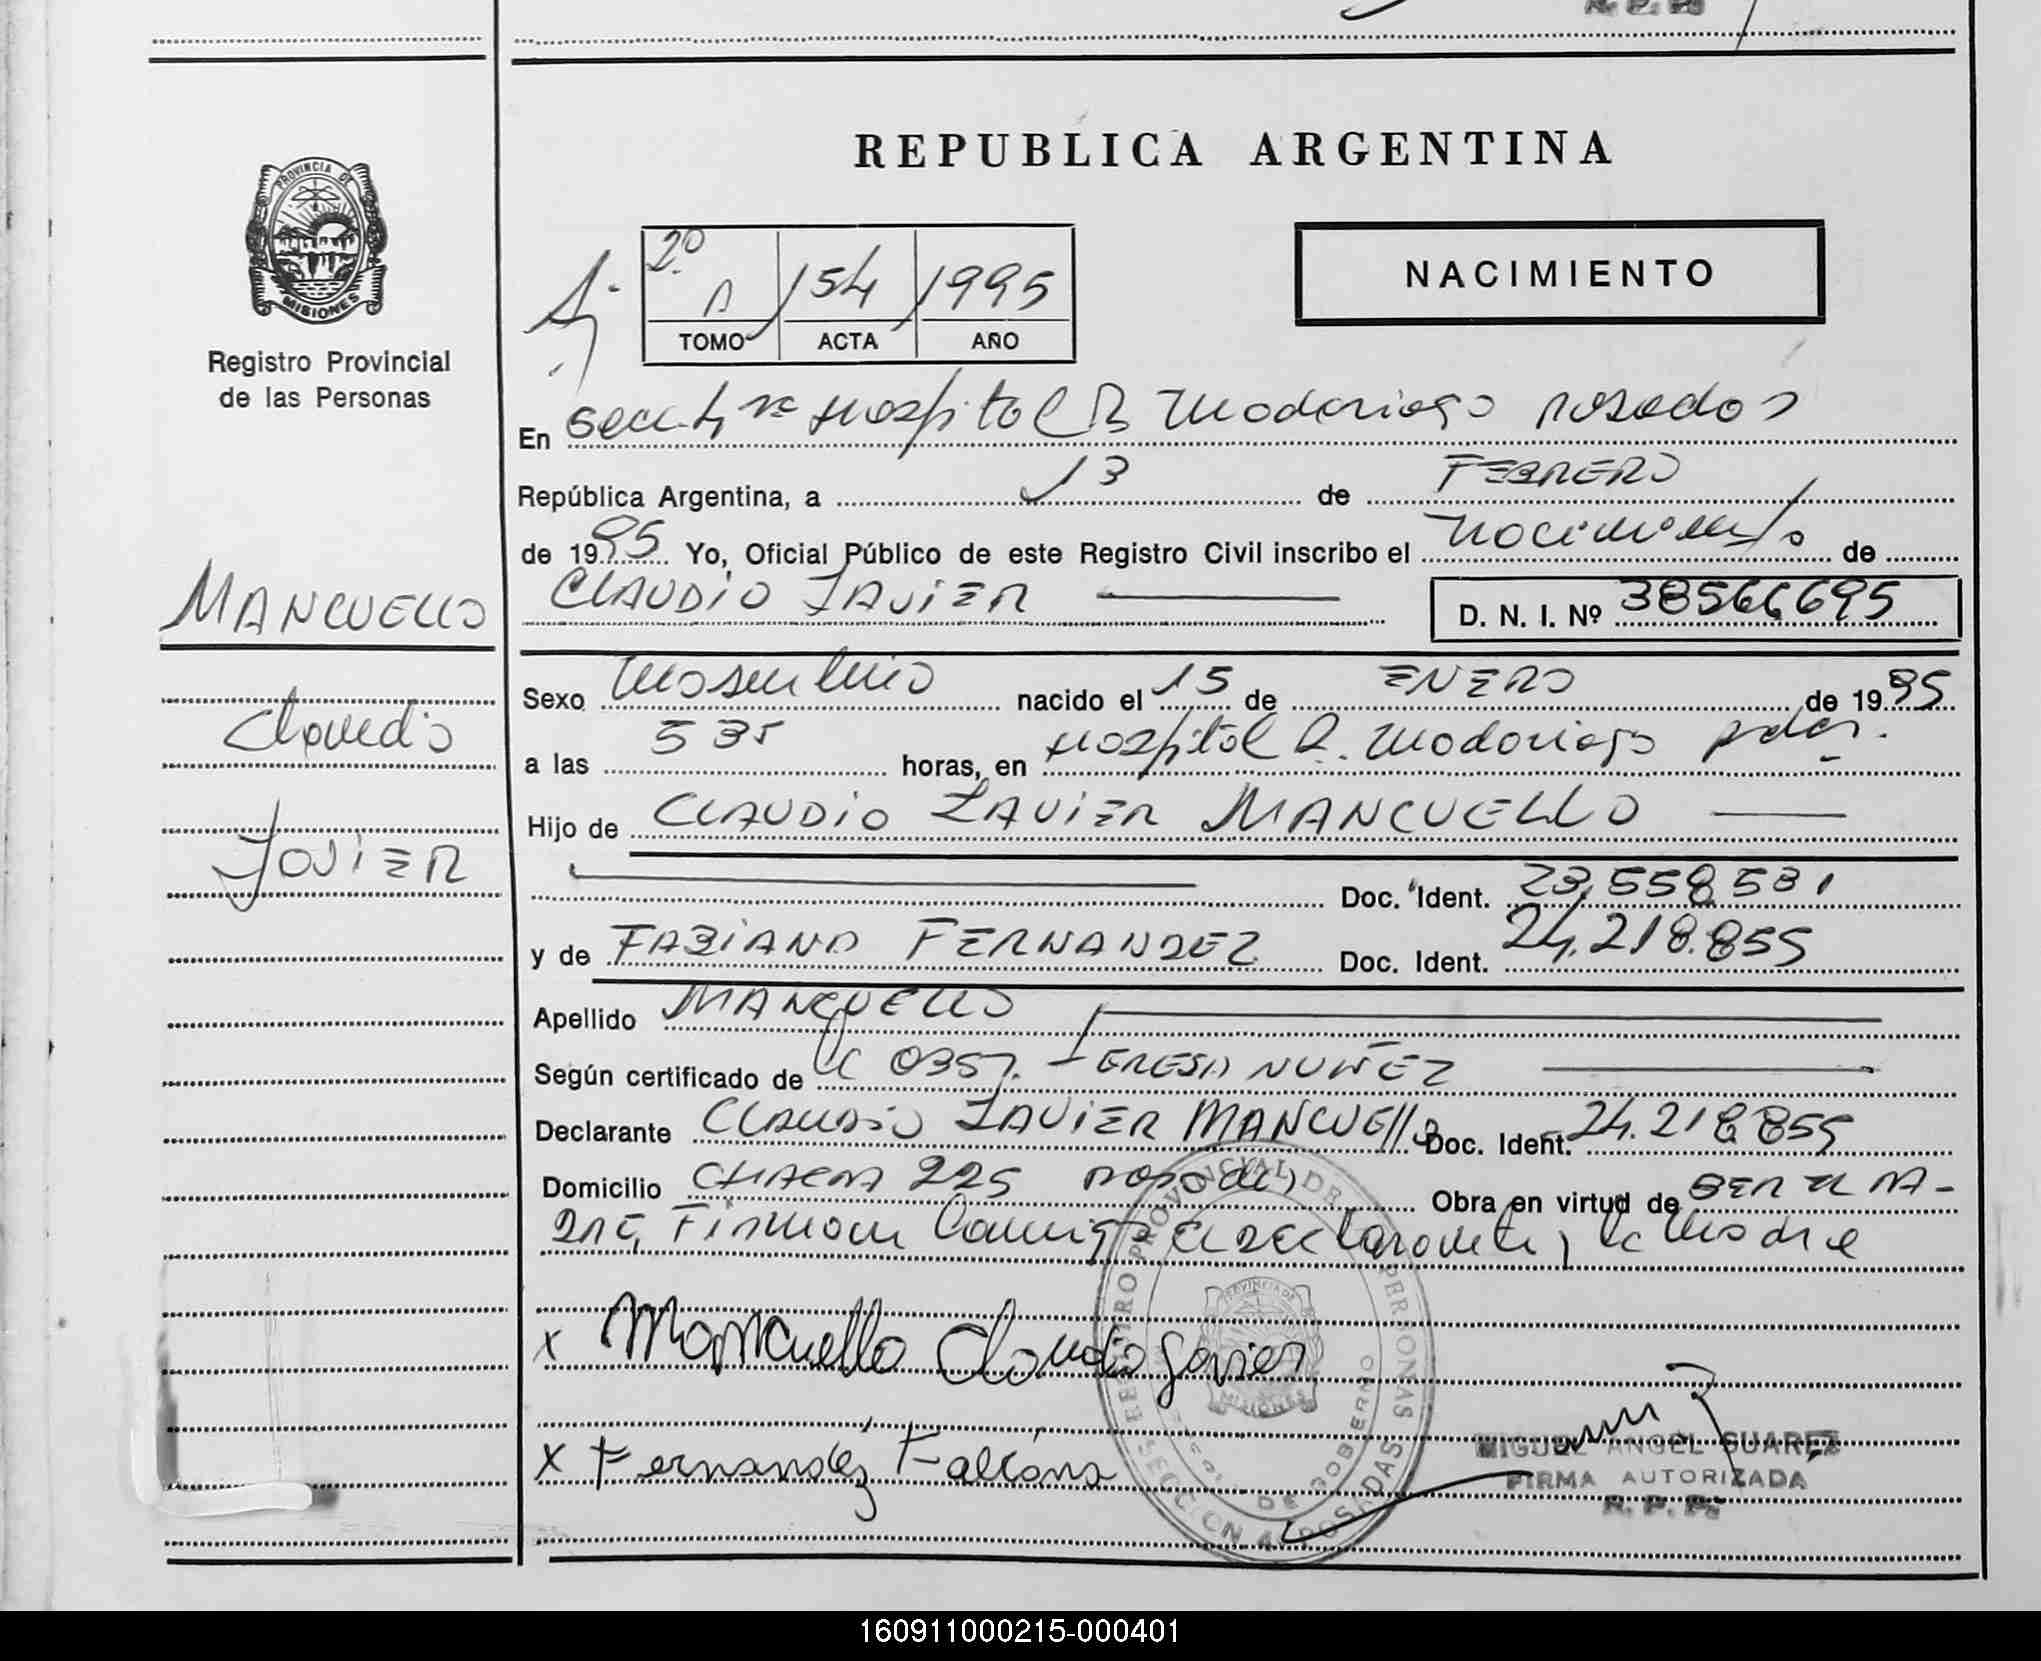 REPUBLICA ARGENTINA
PROVINCIA DE
MISIONES
Registro Provincial
de las Personas
2º
154 1995
TOMO ACTA AÑO
NACIMIENTO
En Secc. 4ta Hospital R Madariaga Posadas
República Argentina, a 13 de FEBRERO
de 1995 Yo, Oficial Público de este Registro Civil inscribo el nacimiento de
CLAUDIO JAVIER D. N. I. Nº 38566695
MANCUELLO
Claudio
JAVIER
Sexo Masculino nacido el 15 de ENERO de 1995
a las 5 35 horas, en Hospital R. Madariaga Pdas.
Hijo de CLAUDIO JAVIER MANCUELLO
Doc. Ident. 23.558.531
y de FABIANA FERNANDEZ Doc. Ident. 24.218.855
Apellido MANCUELLO
Según certificado de la OBST. TERESA NUÑEZ
Declarante CLAUDIO JAVIER MANCUELLO Doc. Ident. 24.218855
Domicilio CHACRA 225 Posadas Obra en virtud de
Firman Conmigo el declarante y la Madre
x Mancuello Claudio Javier
x Fernández Fabiana
REGISTRO PROVINCIAL DE PERSONAS
PROVINCIA DE
MISIONES
DE GOBIERNO
SECCION 4 POSADAS
MIGUEL ANGEL SUAREZ
FIRMA AUTORIZADA
R. P. P.
160911000215-000401